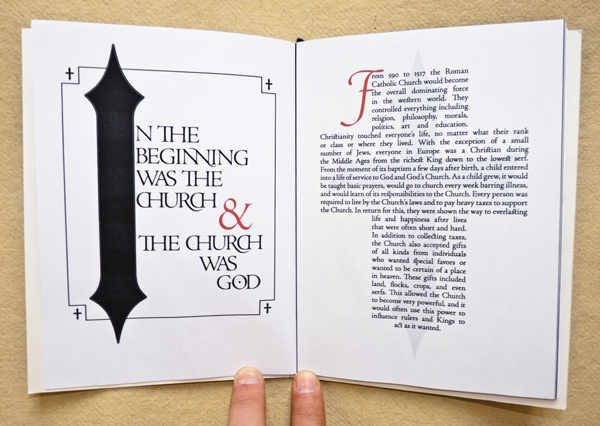 IN THE
BEGINNING
WAS THE
CHURCH
&
THE CHURCH
WAS
GOD
From 590 to 1517 the Roman
Catholic Church would become
the overall dominating force
in the western world. They
controlled everything including
religion, philosophy, morals,
politics, art and education.
Christianity touched everyone's life, no matter what their rank
or class or where they lived. With the exception of a small
number of Jews, everyone in Europe was a Christian during
the Middle Ages from the richest King down to the lowest serf.
From the moment of its baptism a few days after birth, a child entered
into a life of service to God and God's Church. As a child grew, it would
be taught basic prayers, would go to church every week barring illness,
and would learn of its responsibilities to the Church. Every person was
required to live by the Church's laws and to pay heavy taxes to support
the Church. In return for this, they were shown the way to everlasting
life and happiness after lives
that were often short and hard.
In addition to collecting taxes,
the Church also accepted gifts
of all kinds from individuals
who wanted special favors or
wanted to be certain of a place
in heaven. These gifts included
land, flocks, crops, and even
serfs. This allowed the Church
to become very powerful, and it
would often use this power to
influence rulers and Kings to
act as it wanted.